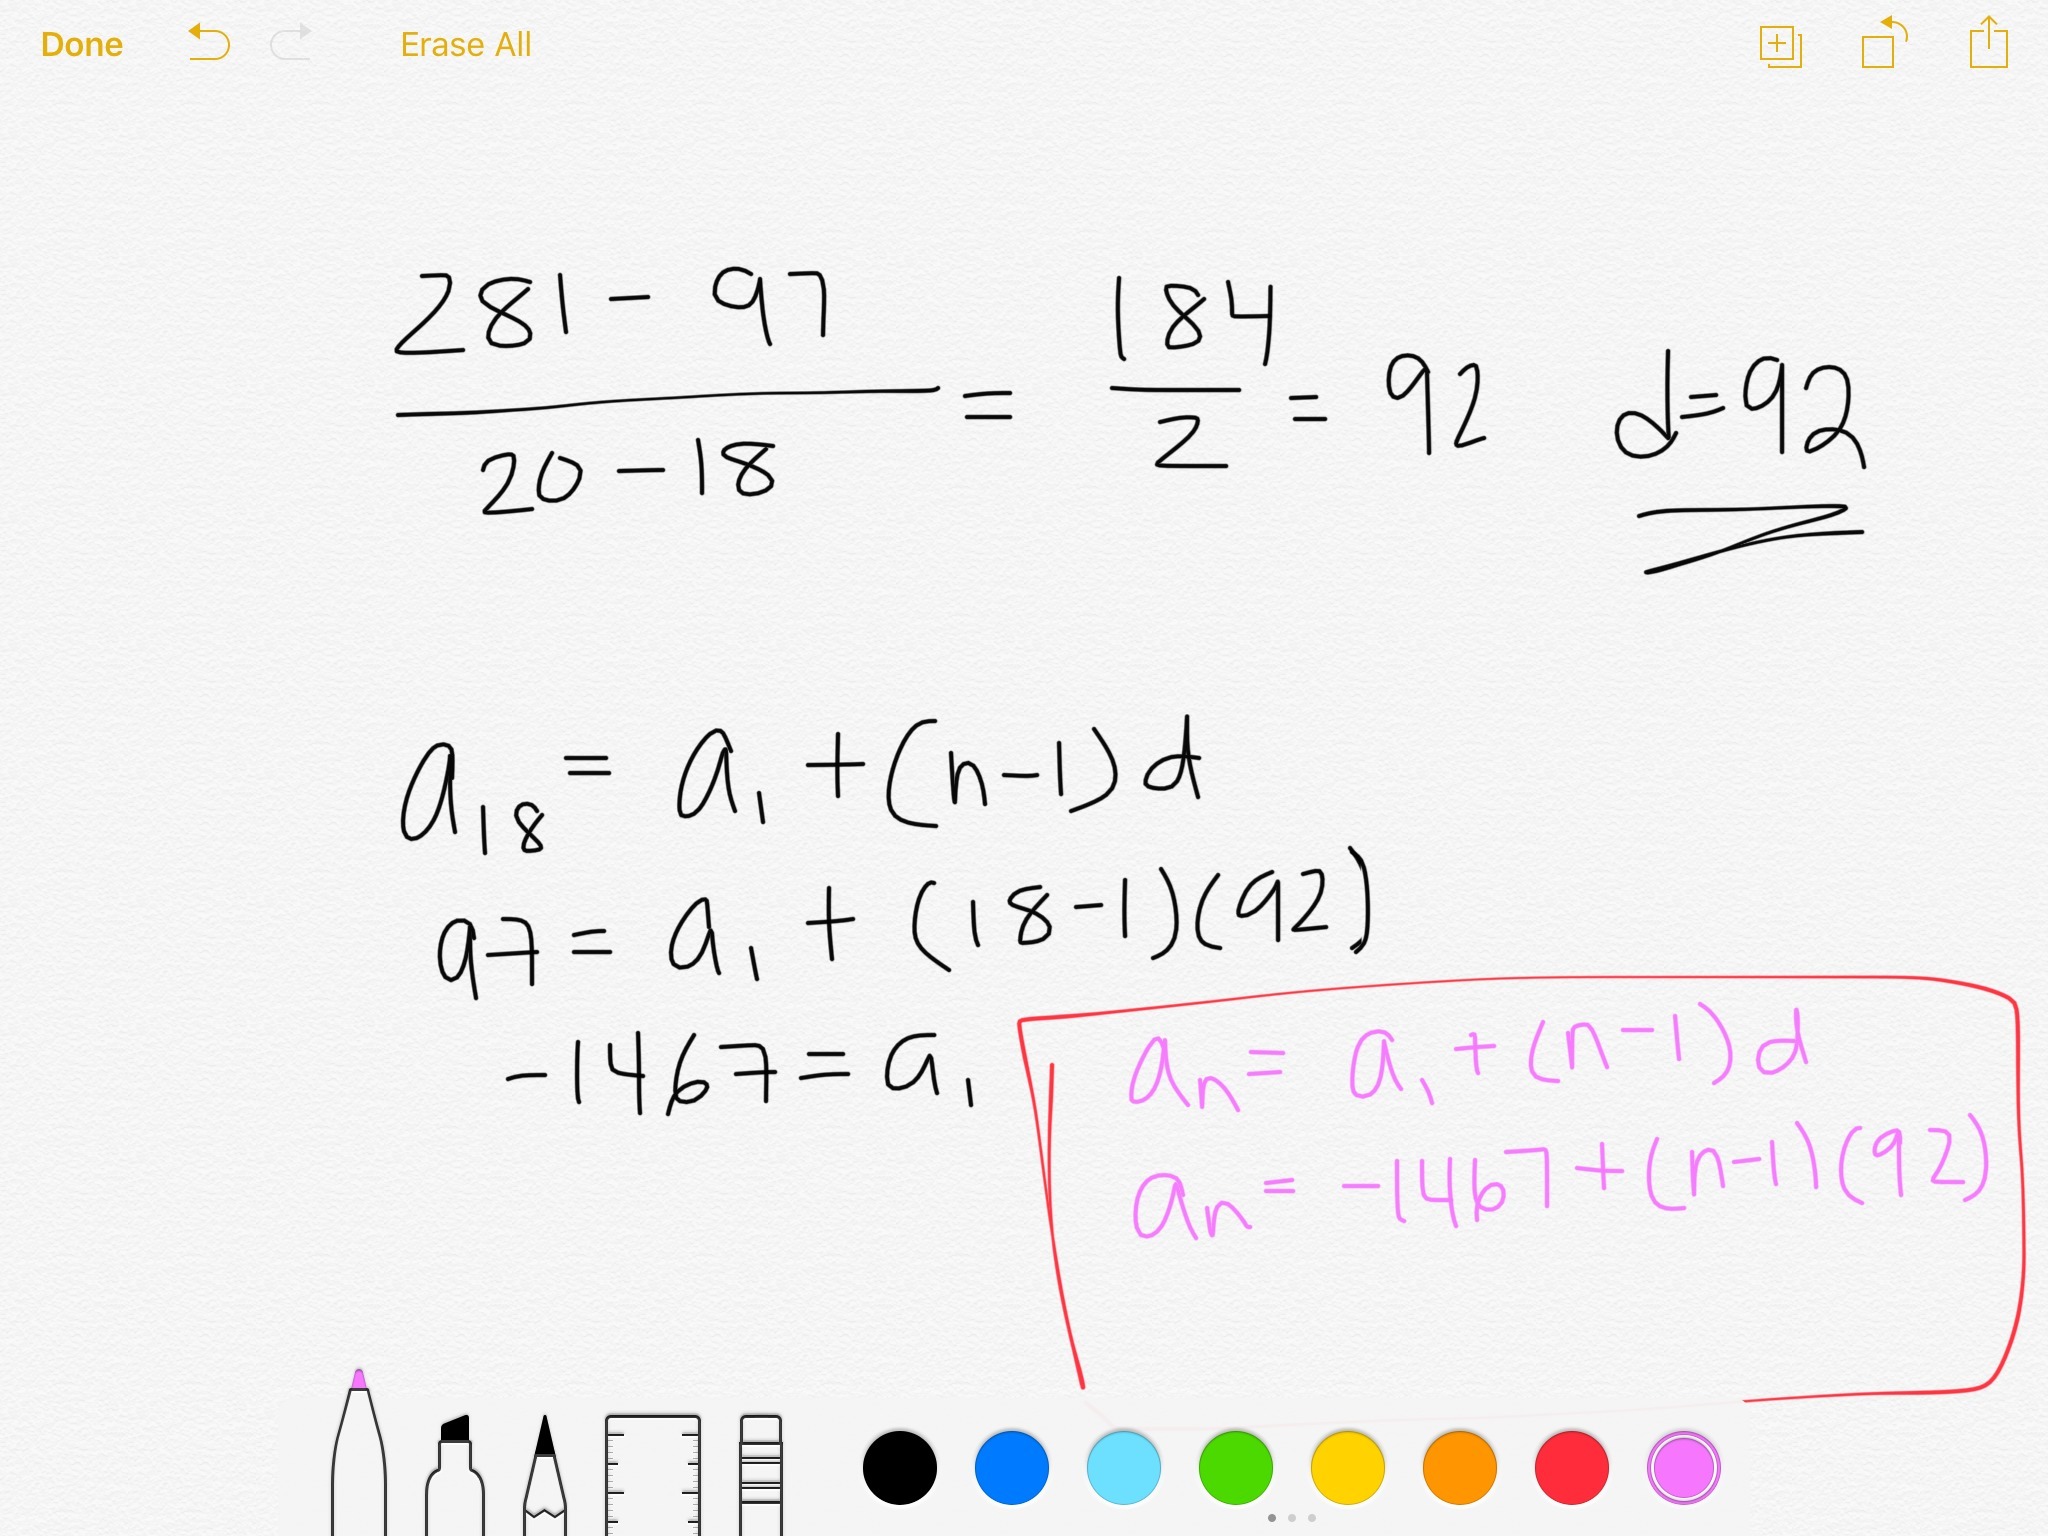 Done Erase All
281 - 97 / 20 - 18 = 184 / 2 = 92 d = 92
a₁₈ = a₁ + (n-1)d
97 = a₁ + (18-1)(92)
-1467 = a₁
aₙ = a₁ + (n-1)d
aₙ = -1467 + (n-1)(92)